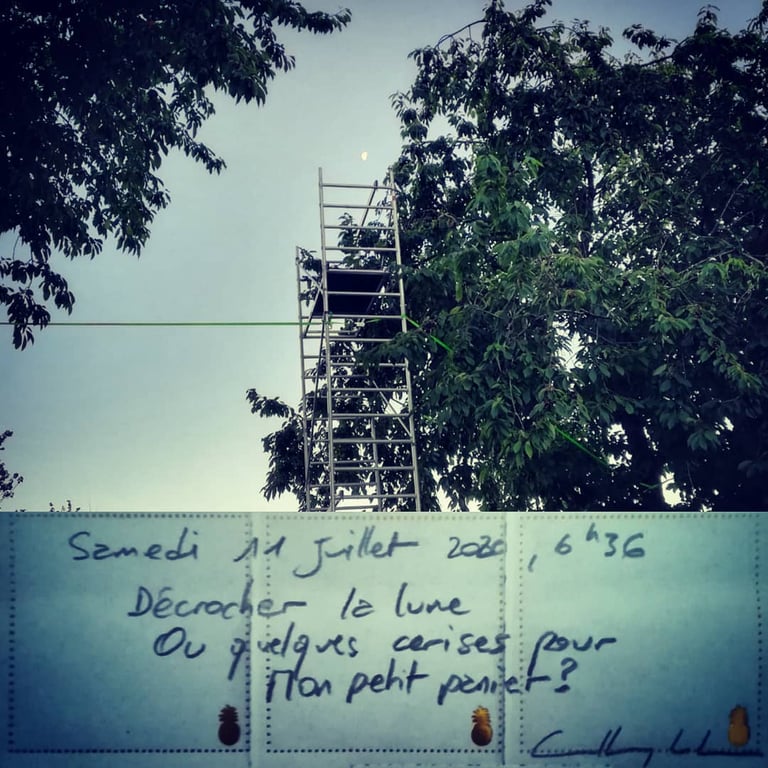 Samedi 11 juillet 2020, 6h36
Décrocher la lune
Ou quelques cerises pour
Mon petit panier?